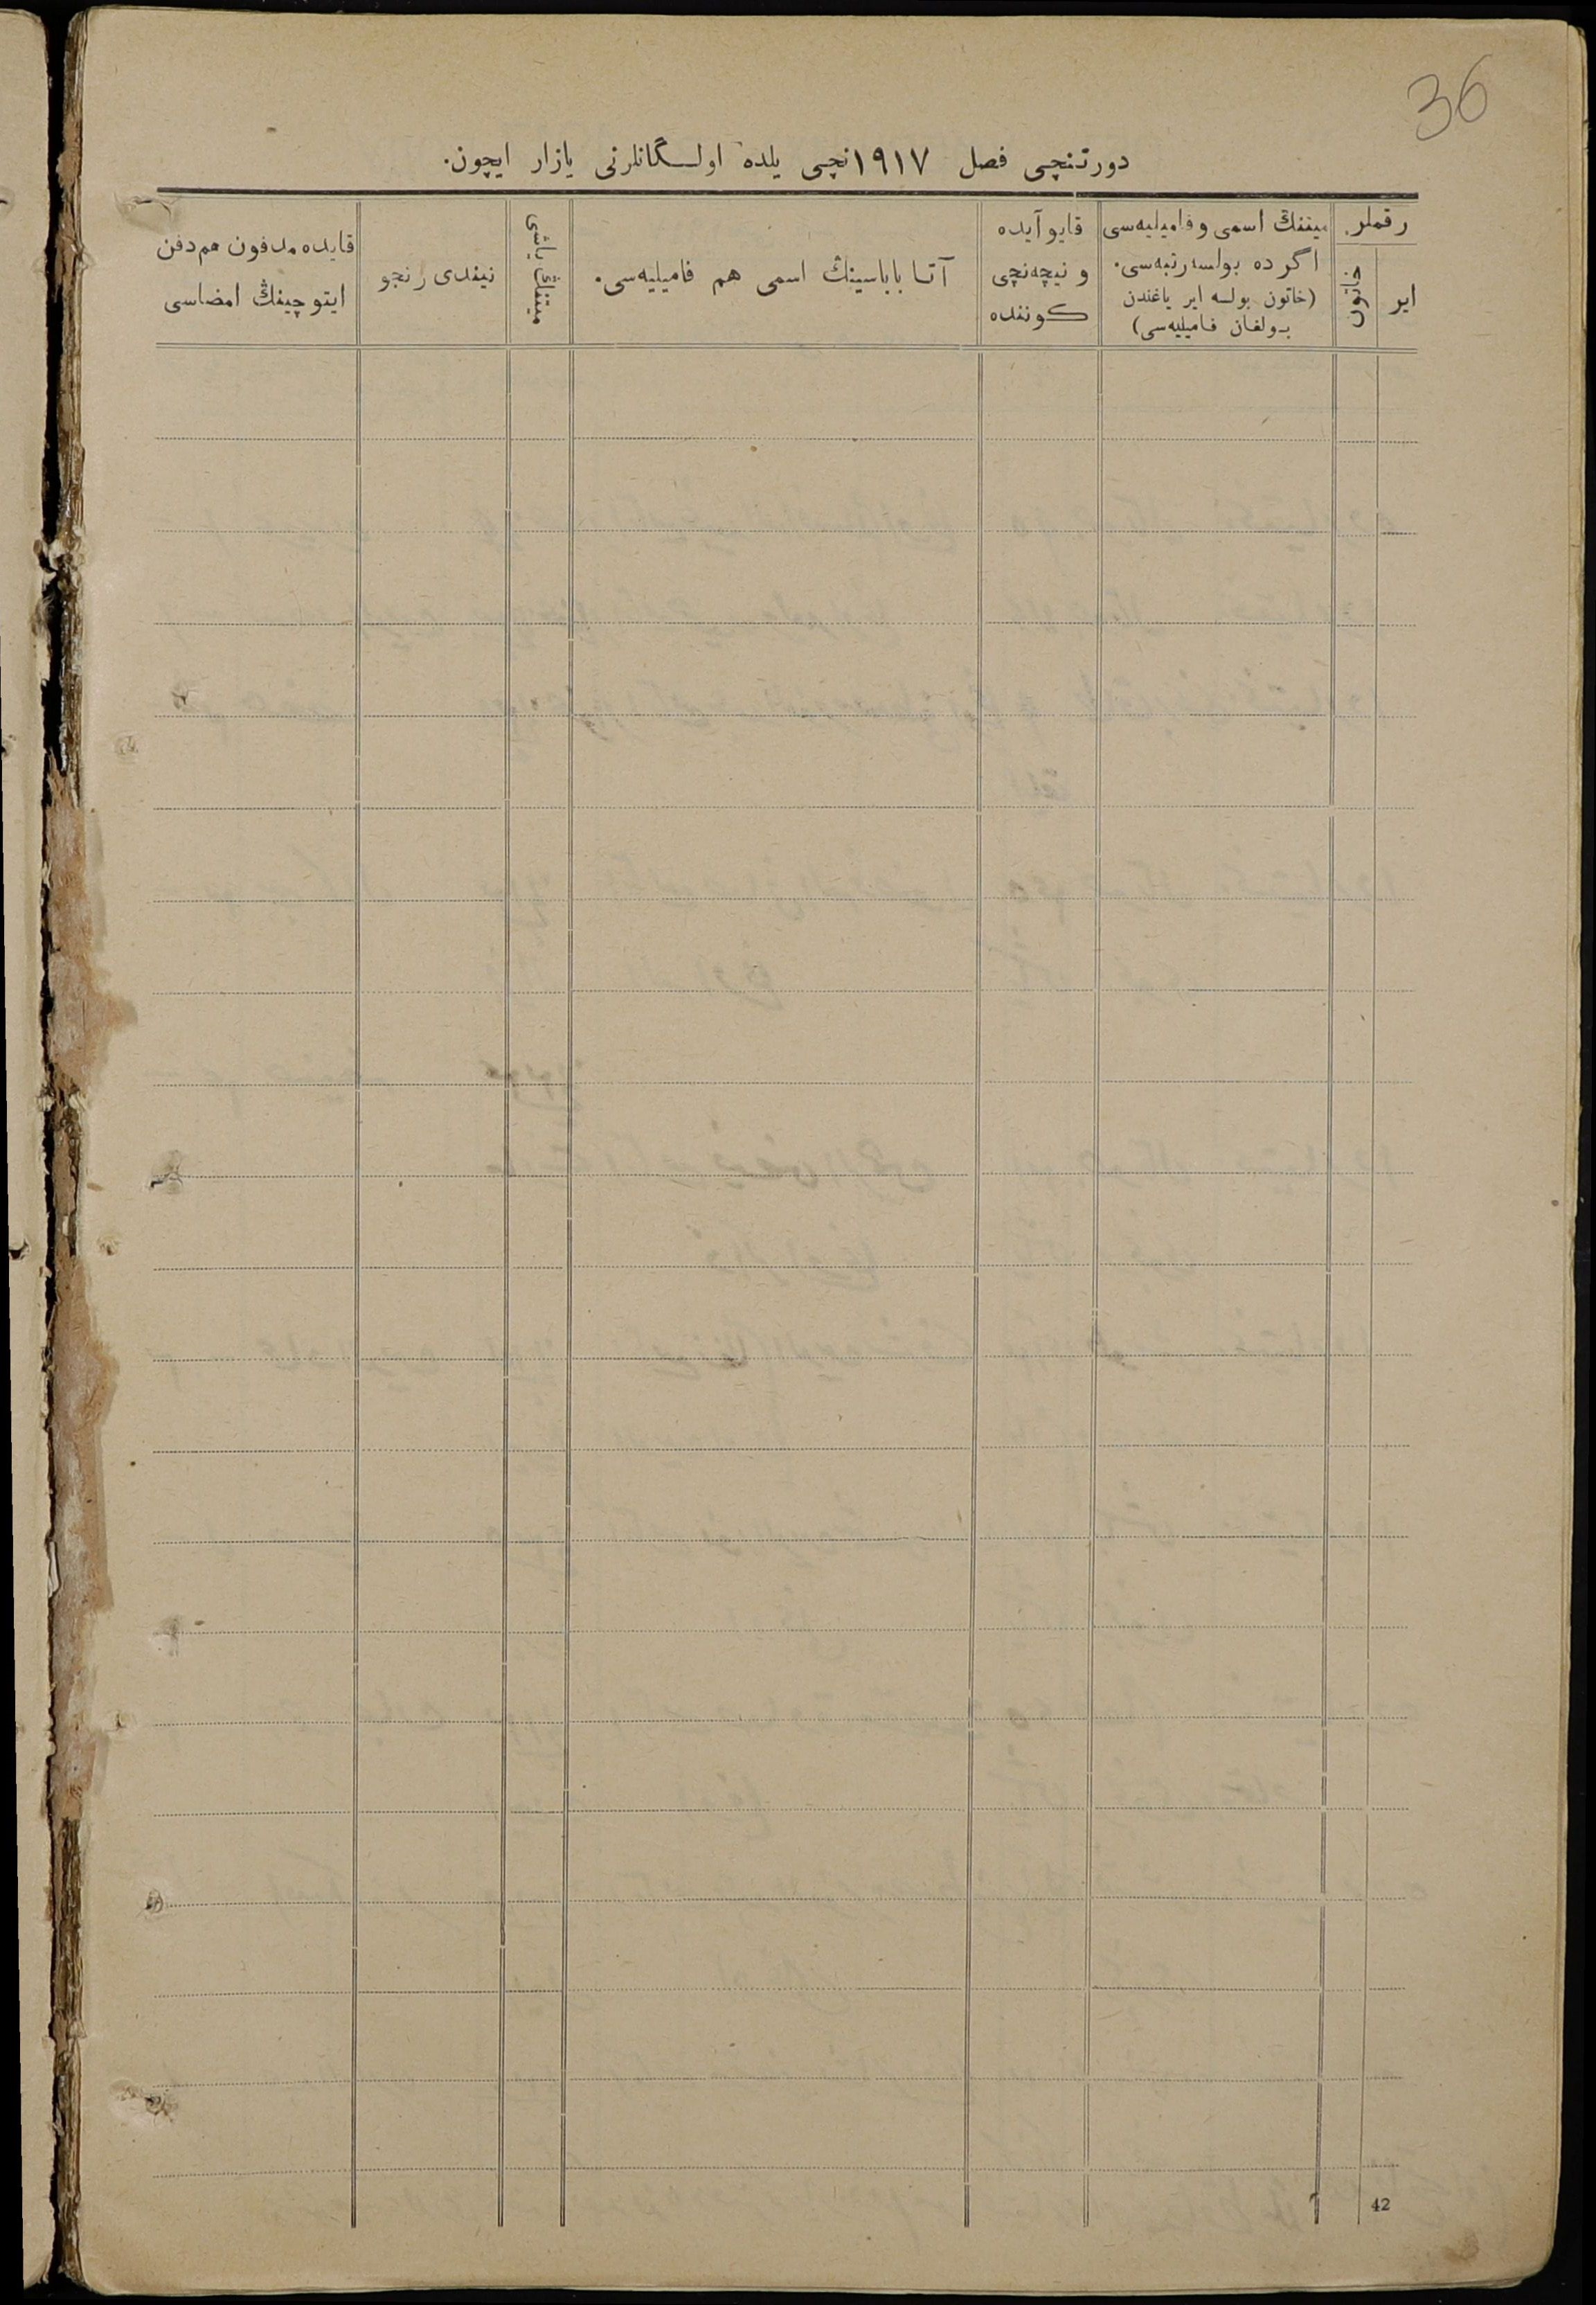 36
دورتنچی فصل ١٩١٧نچی یلده اولـسگانلرنی یازار ایچون.
رقملر.
ایر
خاتون
میتنڭ اسمی و فامیلیه‌سی
اگر ده بولسه رتبه‌سی.
(خاتون بولسه ایر یاغندن
بولغان فامیلیه‌سی)
قایو آیده
و نیچه‌نچی
کوننده
آتا باباسینڭ اسمی هم فامیلیه‌سی.
میتنڭ یاشی
نیندی رنجو
قایده مدفون هم دفن
ایتو چینڭ امضاسی
42